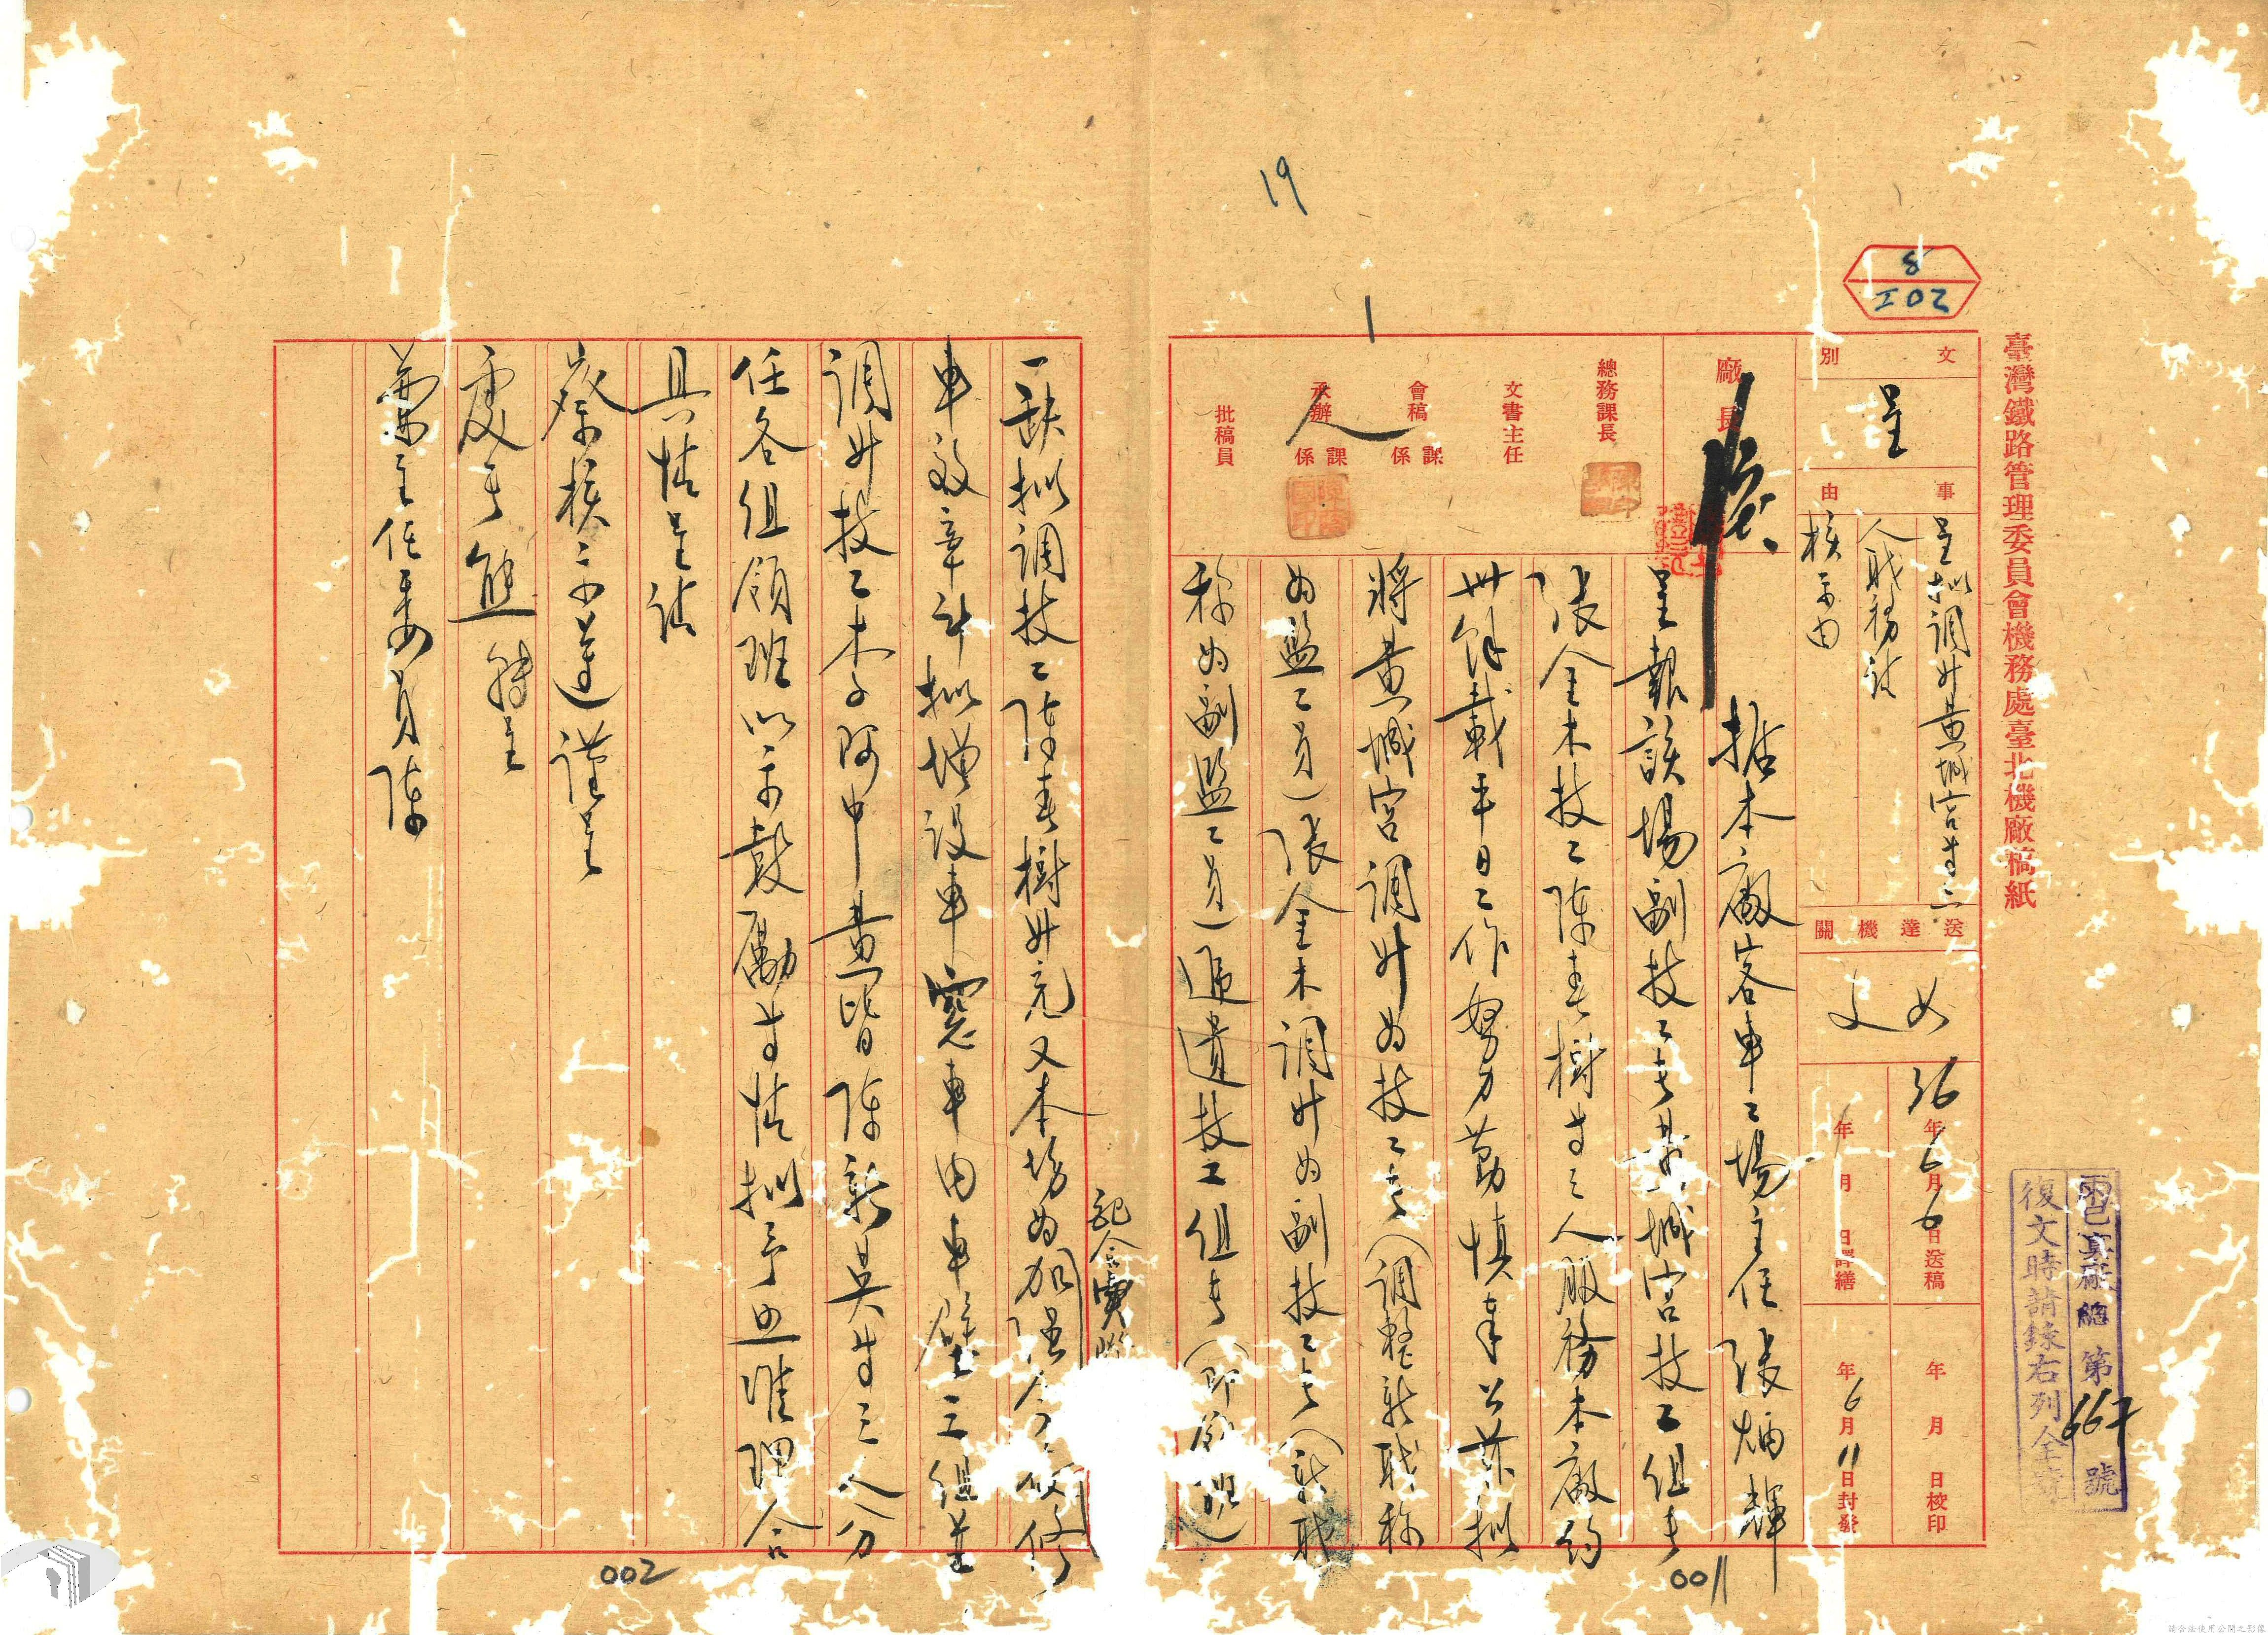 臺灣鐵路管理委員會機務處臺北機廠稿紙
8
I02
19
1
文別
呈
事由
呈擬調升黃城宮等三
人職務請
核示由
送達機關
文
36年6月6日送稿
年 月 日校印
年 月 日譯繕
年6月11日封發
廠長
總務課長
文書主任
會稿 課係
承辦 課係
批稿員
電巳真廠總第667號
復文時請錄右列全號
據本廠客車工場主任張炳輝
呈報該場副技工長黃城宮技工組長
張金木技工陳春樹等三人服務本廠約
卅餘載平日工作努力勤慎奉公茲擬
將黃城宮調升為技工長(調整新職稱
為監工員)張金木調升為副技工長(新職
稱為副監工員)遞遺技工組長(即領班)
一缺擬調技工陳春樹升充又本場為加強
車效率計擬增設車窓車內車壁三組並
調升技工木子阿中黃皆陳新英等三人分
任各組領班以示鼓勵等情擬予照准理合
具情呈請
察核示遵謹呈
處長熊 轉呈
兼主任委員陳
001
002
請合法使用公開之影像